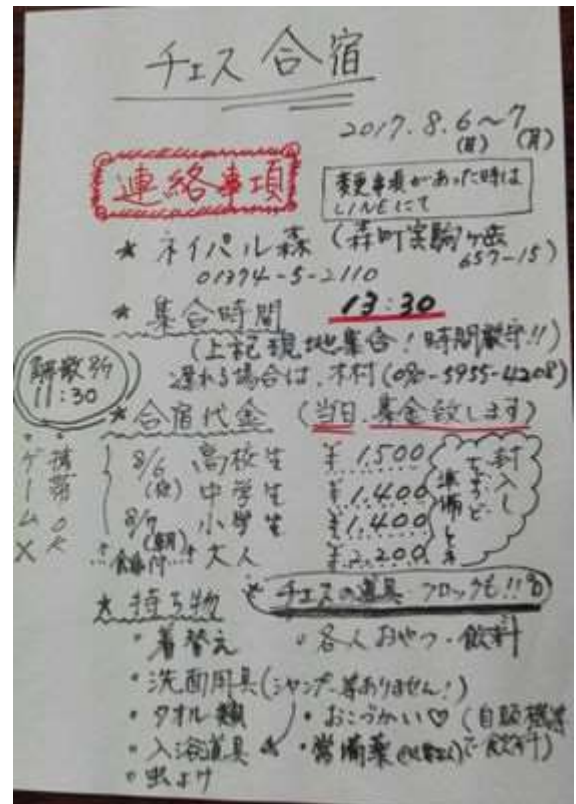 チェス合宿
2017.8.6～7
(日) (月)
連絡事項
変更事項があった時は
LINEにて
★ ネイパル森 (森町駒ヶ岳
657-15)
01374-5-2110
★ 集合時間 13:30
(上記現地集合!時間厳守!!)
遅れる場合は、木村(090-5955-4208)
解散8/7
11:30
★ 合宿代金 (当日.集金致します)
8/6 高校生 ¥1,500
(夜) 中学生 ¥1,400
8/7 小学生 ¥1,400
(朝)
食事付 大人 ¥2,200
封入し
ちょうど
準備
・携帯OK
・ゲームX
★ 持ち物
* チェスの道具 クロックも!!
・着替え ・各人おやつ・飲料
・洗面用具(シャンプー等ありません!)
・タオル類 ・おこづかい♡(自販機等
で飲料)
・入浴道具 ・常備薬
・虫よけ